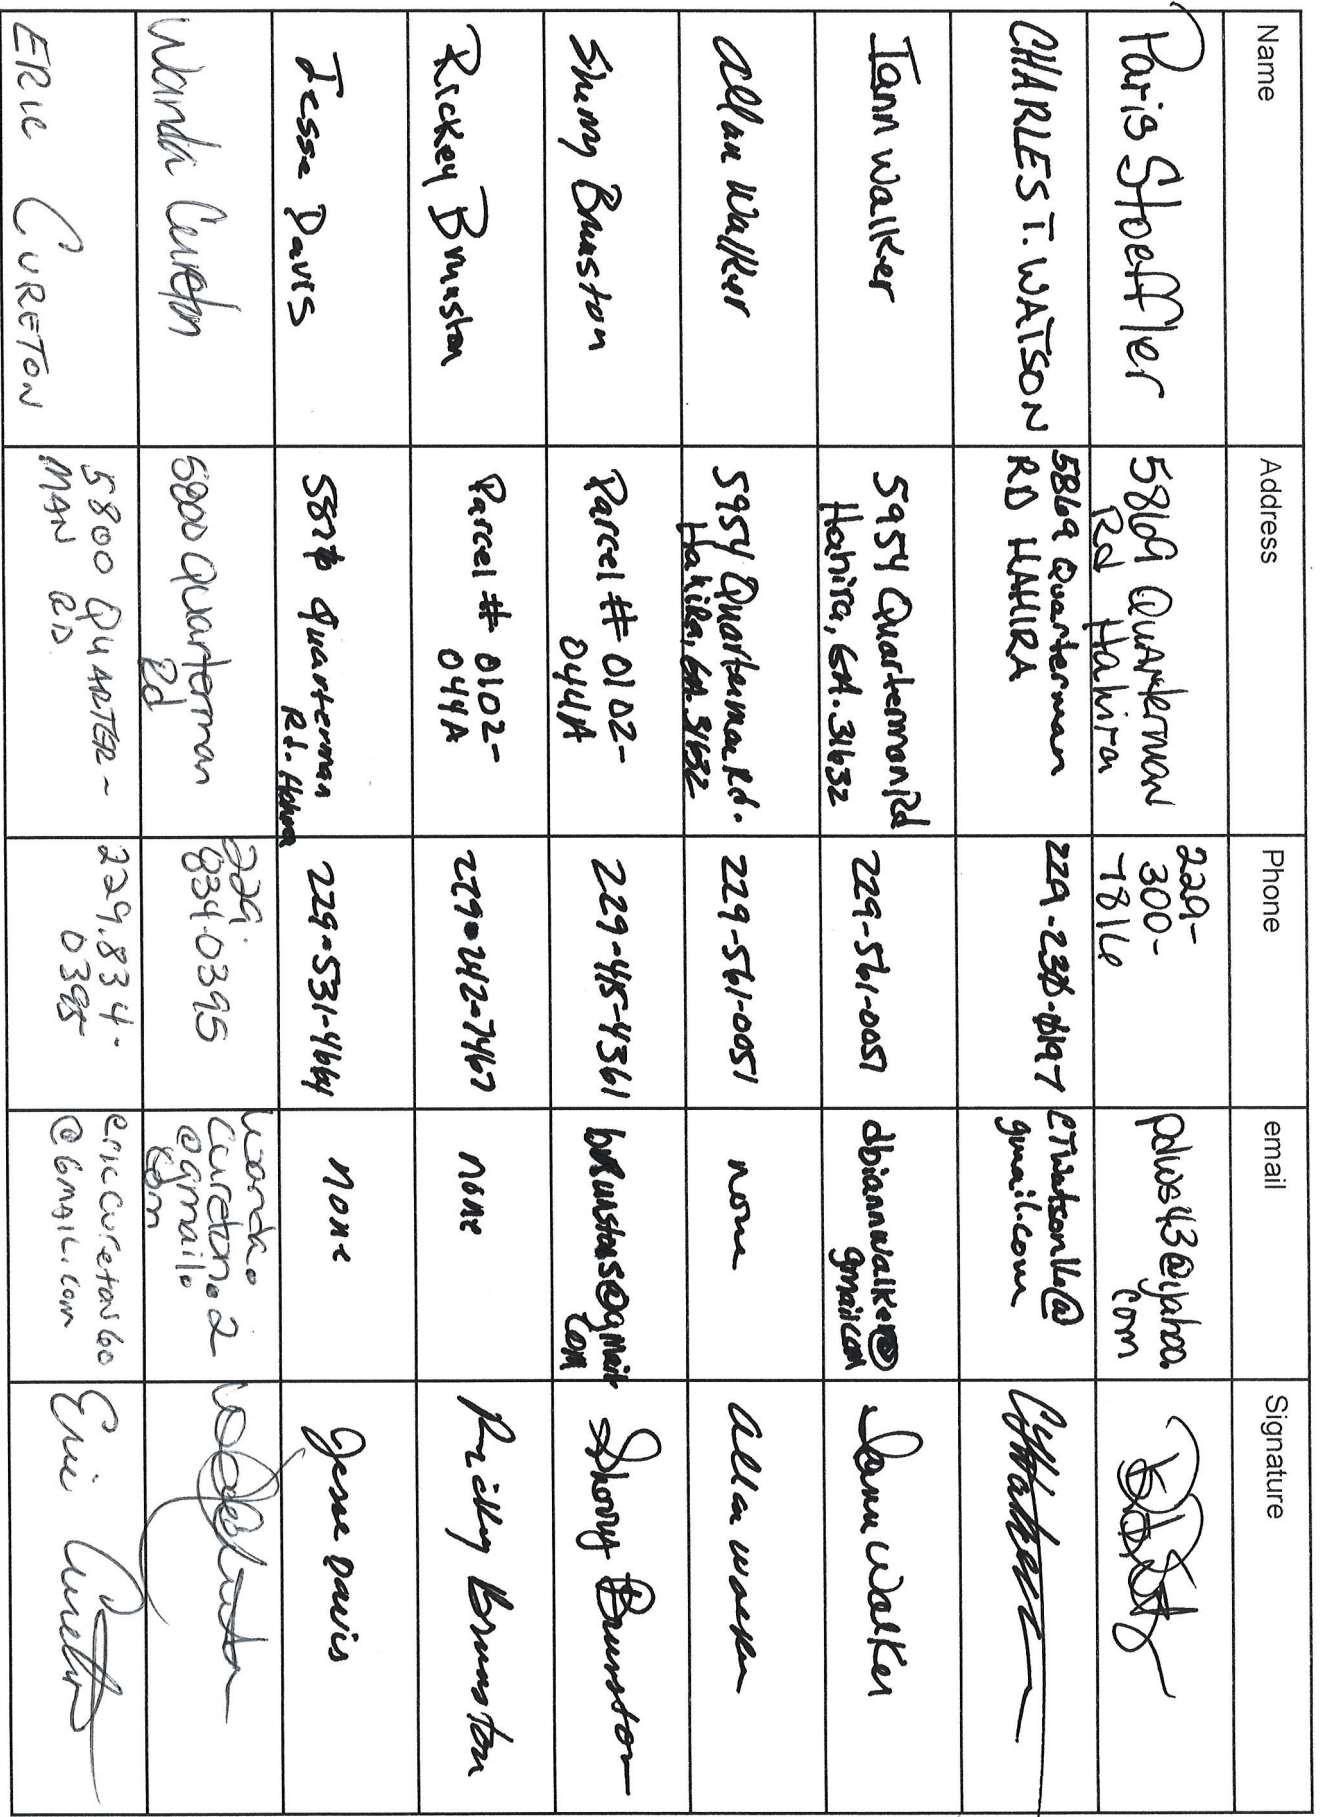 Name Address Phone email Signature
Paris Stoeffler
5869 Quarterman
Rd Hahira
229-
300-
7816
pdws43@yahoo.
com
CHARLES T. WATSON
5869 Quarterman
RD HAHIRA
CTWatson16@
gmail.com
Iann Walker
5954 Quarterman Rd
Hahira, GA. 31632
229-561-0051
dbiannwalker@
gmail.com
Iann Walker
Allan Walker
5954 Quarterman Rd.
Hahira, GA. 31632
229-561-0051
none
Allan Walker
Sherry Brunston
Parcel # 0102-
044A
229-415-4361
brunstons@gmail
com
Sherry Brunston
Rickey Brunston
Parcel # 0102-
044A
229-242-7467
none
Rickey Brunston
Jesse Davis
Quarterman
Rd. Hahira
229-531-4664
none
Jesse Davis
Wanda Cureton
5800 Quarterman
Rd
229.
834.0395
wanda.
cureton.2
@gmail.
com
ERIC CURETON
5800 QUARTER-
MAN RD
229.834-
0395
ericcureton60
@GMAIL.com
Eric Cureton